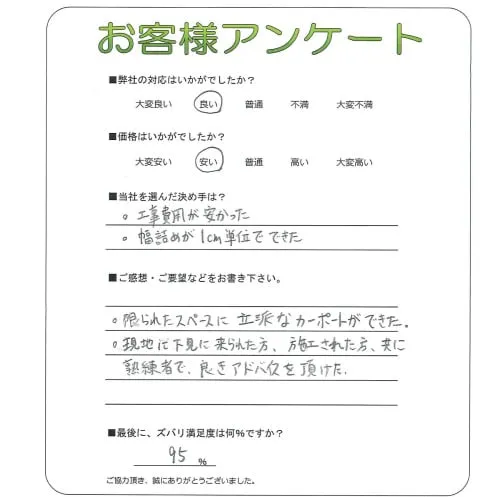 お客様アンケート
■弊社の対応はいかがでしたか？
大変良い 良い 普通 不満 大変不満
■価格はいかがでしたか？
大変安い 安い 普通 高い 大変高い
■当社を選んだ決め手は？
。工事費用が安かった
。幅詰めが1cm単位でできた
■ご感想・ご要望などをお書き下さい。
。限られたスペースに立派なカーポートができた。
。現地に下見に来られた方、施工された方、共に
熟練者で、良きアドバイスを頂けた.
■最後に、ズバリ満足度は何%ですか？
95 %
ご協力頂き、誠にありがとうございました。